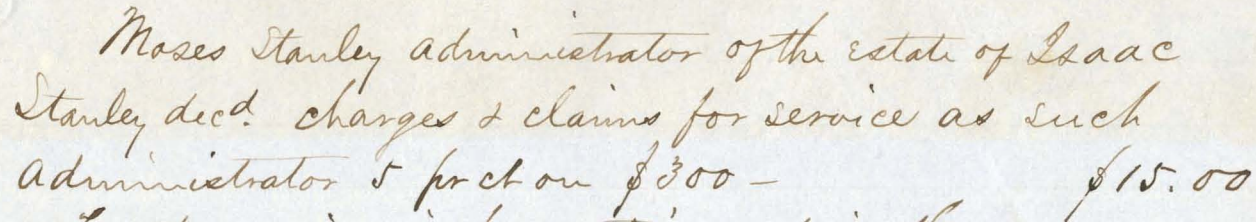 Moses Stanley administrator of the Estate of Isaac
Stanley decd. charges & claims for service as such
administrator 5 pr ct on $300 — $15.00